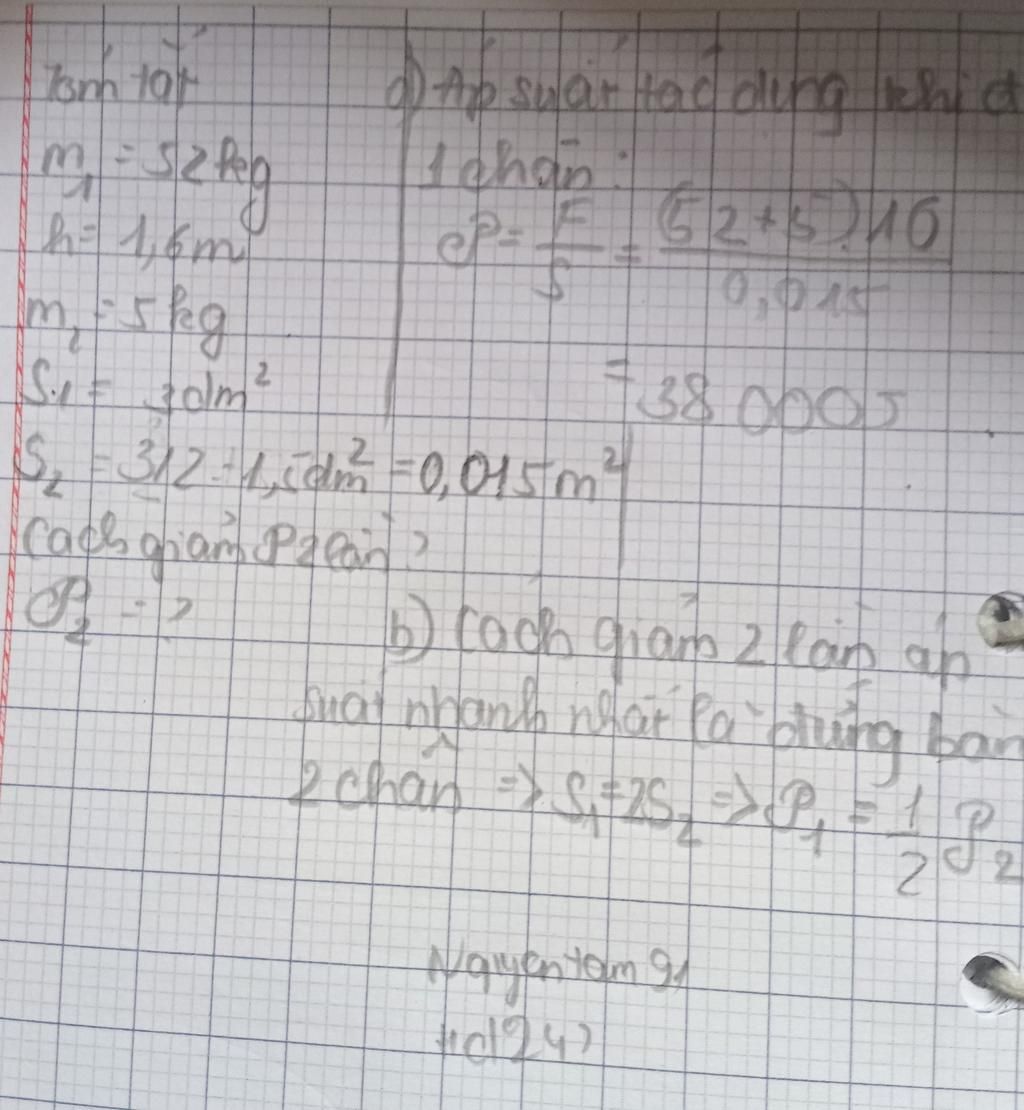 Tóm tắt
m₁ = 52kg
h = 1,6m
m₂ = 5kg
S₁ = 3dm²
S₂ = 3/2 = 1,5dm² = 0,015m²
Cách giảm P 2 lần?
P₂ = ?
a) Áp suất tác dụng khi đ
1 chân:
P = F/S = (52+5).10/0,015
= 38 000J
b) Cách giảm 2 lần áp
suất nhanh nhất là đứng bằn
2 chân => S₁ = 2S₂ => P₁ = 1/2 P₂
Nguyentam91
hd247